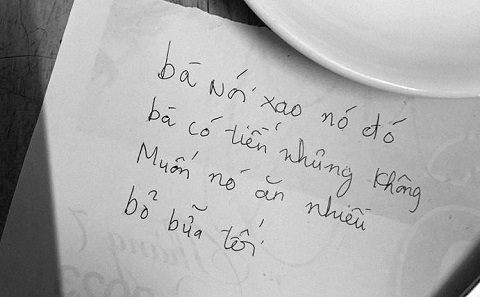 bà nói xao nó đó
bà có tiền nhưng không
Muốn nó ăn nhiều
bỏ bữa tối